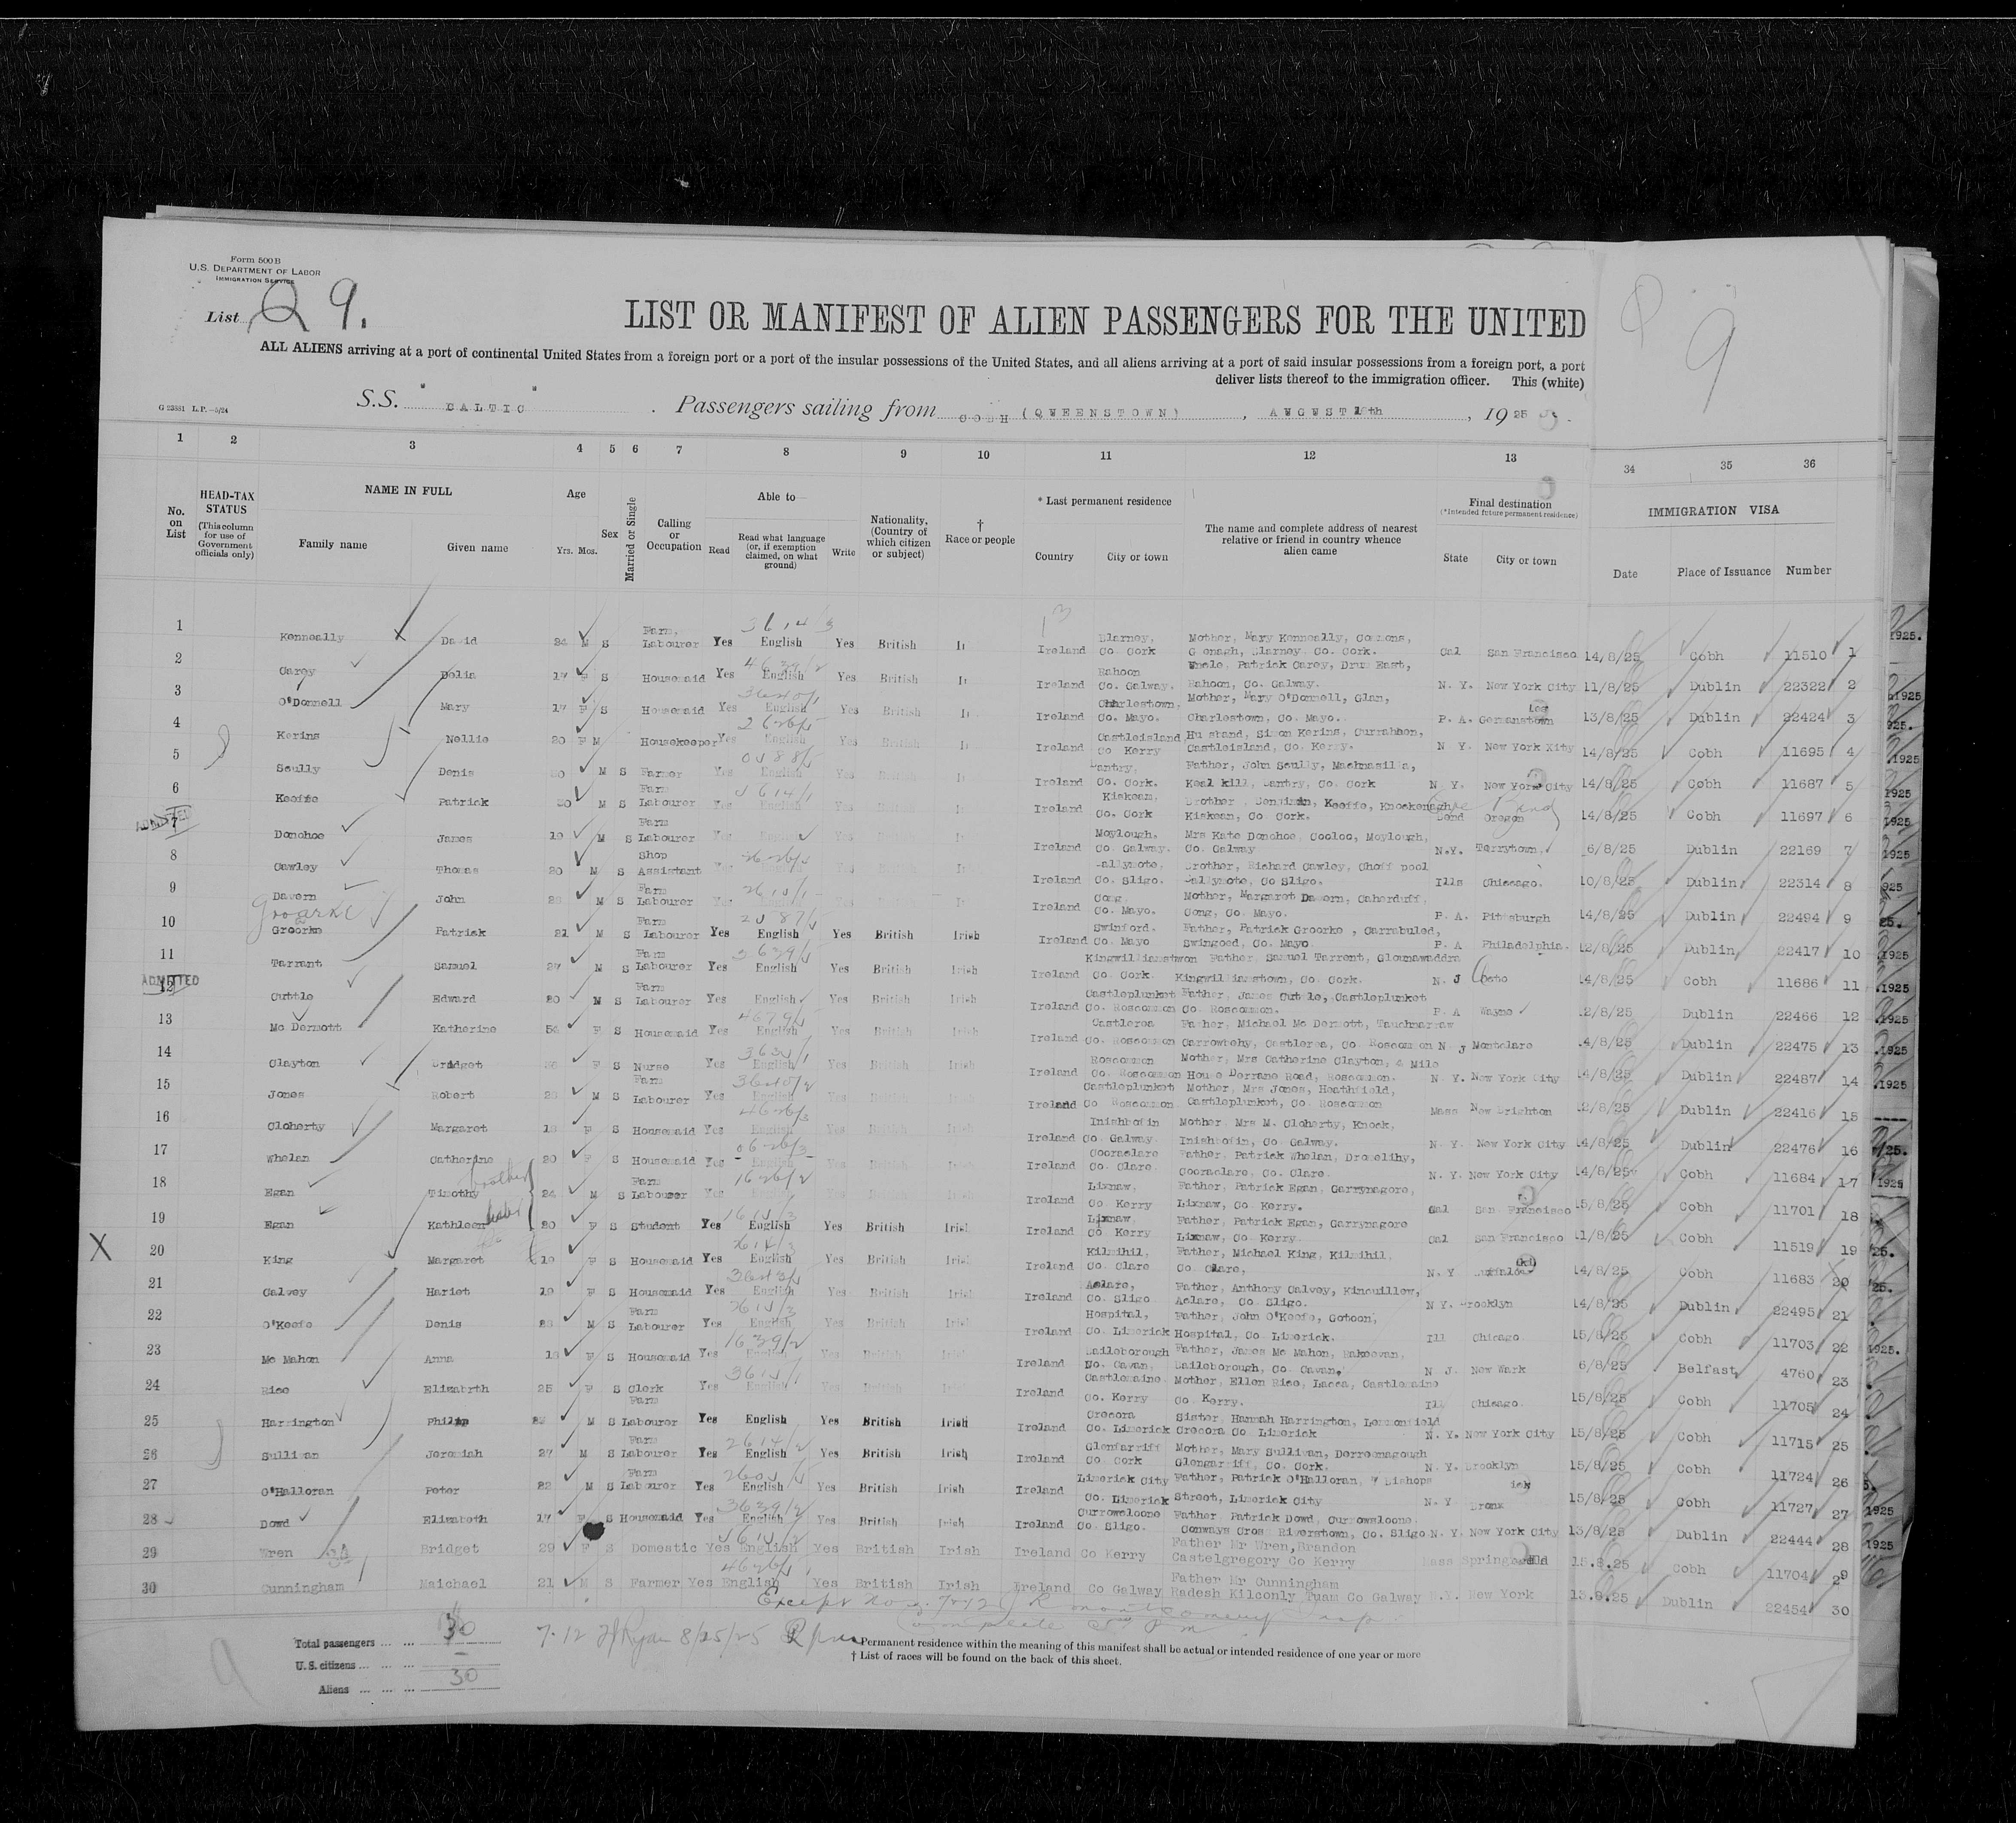 Form 500B
U.S. DEPARTMENT OF LABOR
IMMIGRATION SERVICE
List 9.
9
LIST OR MANIFEST OF ALIEN PASSENGERS FOR THE UNITED
ALL ALIENS arriving at a port of continental United States from a foreign port or a port of the insular possessions of the United States, and all aliens arriving at a port of said insular possessions from a foreign port, a port
deliver lists thereof to the immigration officer. This (white)
G 23881 L.P.—5/24
S.S. "BALTIC" . Passengers sailing from COBH (QUEENSTOWN), AUGUST 16th, 1925
1 2 3 4 5 6 7 8 9 10 11 12 13 34 35 36
No. on List
HEAD-TAX STATUS (This column for use of Government officials only)
NAME IN FULL
Family name Given name
Age
Yrs. Mos.
Sex
Married or Single
Calling or Occupation
Able to
Read
Read what language (or, if exemption claimed, on what ground)
Write
Nationality. (Country of which citizen or subject)
† Race or people
* Last permanent residence
Country City or town
The name and complete address of nearest relative or friend in country whence alien came
Final destination
(*Intended future permanent residence)
State City or town
IMMIGRATION VISA
Date Place of Issuance Number
1 Kenneally David 24 M S Farm, Labourer Yes English Yes British Ir Ireland Blarney, Co. Cork Mother, Mary Kenneally, Commons, Blarney, Co. Cork. Cal San Francisco 14/8/25 Cobh 11510 1
2 Carey Delia 17 F S Housemaid Yes English Yes British Ir Ireland Rahoon Co. Galway. Uncle, Patrick Carey, Drum East, Rahoon, Co. Galway. N. Y. New York City 11/8/25 Dublin 22322 2
3 O'Donnell Mary 17 F S Housemaid Yes English Yes British Ir Ireland Charlestown, Co. Mayo. Mother, Mary O'Donnell, Glan, Charlestown, Co. Mayo. P. A. Germanstown 13/8/25 Dublin 22424 3
4 Kerins Nellie 20 F M Housekeeper Yes English Yes British Ir Ireland Castleisland, Co Kerry Husband, Simon Kerins, Currahhen, Castleisland, Co. Kerry. N Y. New York Xity 14/8/25 Cobh 11695 4
5 Scully Denis 30 M S Farmer Yes English Yes British Ir Ireland Bantry, Co. Cork. Father, John Scully, Maeknasilla, Keal kill, Bantry, Co. Cork N Y. New York City 14/8/25 Cobh 11687 5
6 Keeffe Patrick 30 M S Farm Labourer Yes Yes Ireland Kiskeam, Co. Cork Brother Keeffe, Kiskeam, Co. Cork. Bend Oregon 14/8/25 Cobh 11697 6
ADMITTED
7 Donohoe James 19 M S Farm Labourer Yes English Yes Ireland Moylough. Co. Galway. Mrs Kate Donohoe, Cooloo, Moylough, Co. Galway N.Y. Tarrytown. 6/8/25 Dublin 22169 7
8 Cawley Thomas 20 M S Shop Assistant Ireland Ballymote, Co. Sligo. Brother, Richard Cawley, Ballymote, Co Sligo. Ills Chicago. 10/8/25 Dublin. 22314 8
9 Davern John M S Farm Labourer Ireland Cong, Co. Mayo. Mother, Margaret Davern, Caherduff, Cong, Co. Mayo. P. A. Pittsburgh 14/8/25 Dublin 22494 9
Groarke
10 Groorke Patrick 21 M S Farm Labourer Yes English Yes British Irish Ireland Swinford. Co. Mayo Father, Patrick Groorke, Carrabuled, Co. Mayo. P. A Philadelphia. 12/8/25 Dublin 22417 10
11 Tarrant Samuel 27 M S Farm Labourer Yes English Yes British Irish Ireland Kingwilliamstwon Co. Cork. Father, Samuel Tarrent, Glounawaddra Kingwilliamstown, Co. Cork. N. J 14/8/25 Cobh 11686 11
ADMITTED
12 Cuttle Edward 20 M S Farm Labourer Yes English Yes British Irish Ireland Castleplunket Co. Roscommon Father, James Cuttle, Castleplunket Co. Roscommon. P. A Wayne 12/8/25 Dublin 22466 12
13 Mc Dermott Katherine F S Housemaid Yes English Yes British Irish Ireland Castlerea Co. Roscommon Father, Michael Mc Dermott, Carrowbehy, Castlerea, Co. Roscommon N J Montclare 14/8/25 Dublin 22475 13
14 Clayton Bridget F S Nurse Yes English Yes British Irish Ireland Roscommon Co. Roscommon Mother, Mrs Catherine Clayton, 4 Mile House Derrane Road, Roscommon. N. Y. New York City 14/8/25 Dublin 22487 14
15 Jones Robert M S Farm Labourer Yes English Ireland Castleplunket Co Roscommon Mother, Mrs Jones, Heathfield, Castleplunket, Co. Roscommon Mass New Brighton 12/8/25 Dublin 22416 15
16 Cloherty Margaret 18 F S Housemaid Yes English Yes British Irish Ireland Inishbofin Co. Galway Mother Mrs M. Cloherty, Knock, Inishbofin, Co. Galway. N. Y. New York City 14/8/25 Dublin 22476 16
17 Whelan Catherine 20 F S Housemaid Yes English Ireland Cooraclare Co. Clare. Father, Patrick Whelan, Dromelihy, Cooraclare, Co. Clare. N. Y. New York City 14/8/25 Cobh 11684 17
18 Egan Timothy brother 24 M S Farm Labourer Yes Ireland Lixnaw, Co. Kerry Father, Patrick Egan, Garrynagore, Lixnaw, Co. Kerry. Cal San Francisco 15/8/25 Cobh 11701 18
19 Egan Kathleen sister 20 F S Student Yes English Yes British Irish Ireland Lixnaw, Co Kerry Father, Patrick Egan, Garrynagore Lixnaw, Co. Kerry. Cal San Francisco 11/8/25 Cobh 11519 19
X 20 King Margaret 19 F S Housemaid Yes English Yes British Irish Ireland Kilmihil, Co. Clare Father, Michael King, Kilmihil, Co. Clare, N. Y 14/8/25 Cobh 11683 20
21 Galvey Hariet 19 F S Housemaid Yes English Yes British Irish Ireland Aclare, Co. Sligo Father, Anthony Galvey, Kincuillew, Aclare, Co. Sligo. N Y. Brooklyn 14/8/25 Dublin 22495 21
22 O'Keefe Denis M S Farm Labourer Yes English Yes British Irish Ireland Hospital, Co. Limerick Father, John O'Keefe, Gotoon, Hospital, Co. Limerick. Ill Chicago. 15/8/25 Cobh 11703 22
23 Mc Mahon Anna 18 F S Housemaid Yes English Ireland Baileborough Co. Cavan, Father, James Mc Mahon, Rakeevan, Baileborough, Co. Cavan, N J. New Wark 6/8/25 Belfast 4760 23
24 Rice Elizabrth 25 F S Clerk Yes English Ireland Castlemaine Co. Kerry Mother, Ellen Rice, Lacca, Castlemaine Co. Kerry. Ill Chicago. 15/8/25 Cobh 11705 24
25 Harrington Philip M S Farm Labourer Yes English Yes British Irish Ireland Crecora Co. Limerick Sister, Hannah Harrington, Lemmonfield Crecora Co Limerick N. Y. New York City 15/8/25 Cobh 11715 25
26 Sullivan Jeremiah 27 M S Farm Labourer Yes English Yes British Irish Ireland Glenfarriff Co Cork Mother, Mary Sullivan, Derreenagough Glengarriff, Co. Cork. N. Y. Brooklyn 15/8/25 Cobh 11724 26
27 O'Halloran Peter 22 M S Farm Labourer Yes English Yes British Irish Ireland Limerick City Co. Limerick Father, Patrick O'Halloran, 7 Bishops Street, Limerick City N. Y Bronx 15/8/25 Cobh 11727 27
28 Dowd Elizabeth 17 F S Housemaid Yes English Yes British Irish Ireland Curroweloone Co. Sligo. Father Patrick Dowd, Curroweloone, Conways Cros Riverstown, Co. Sligo N. Y. New York City 13/8/25 Dublin 22444 28
29 Wren Bridget 29 F S Domestic Yes English Yes British Irish Ireland Co Kerry Father Mr Wren, Brandon Castelgregory Co Kerry Mass Springfield 15.8.25 Cobh 11704 29
30 Cunningham Maichael 21 M S Farmer Yes English Yes British Irish Ireland Co Galway Father Mr Cunningham Radesh Kilconly Tuam Co Galway N.Y. New York 13.8.25 Dublin 22454 30
Except nos. 7+12
Total passengers ... ... 30
U.S. citizens ... ... ... —
Aliens ... ... ... 30
7-12 Ryan 8/25/25
* Permanent residence within the meaning of this manifest shall be actual or intended residence of one year or more
† List of races will be found on the back of this sheet.